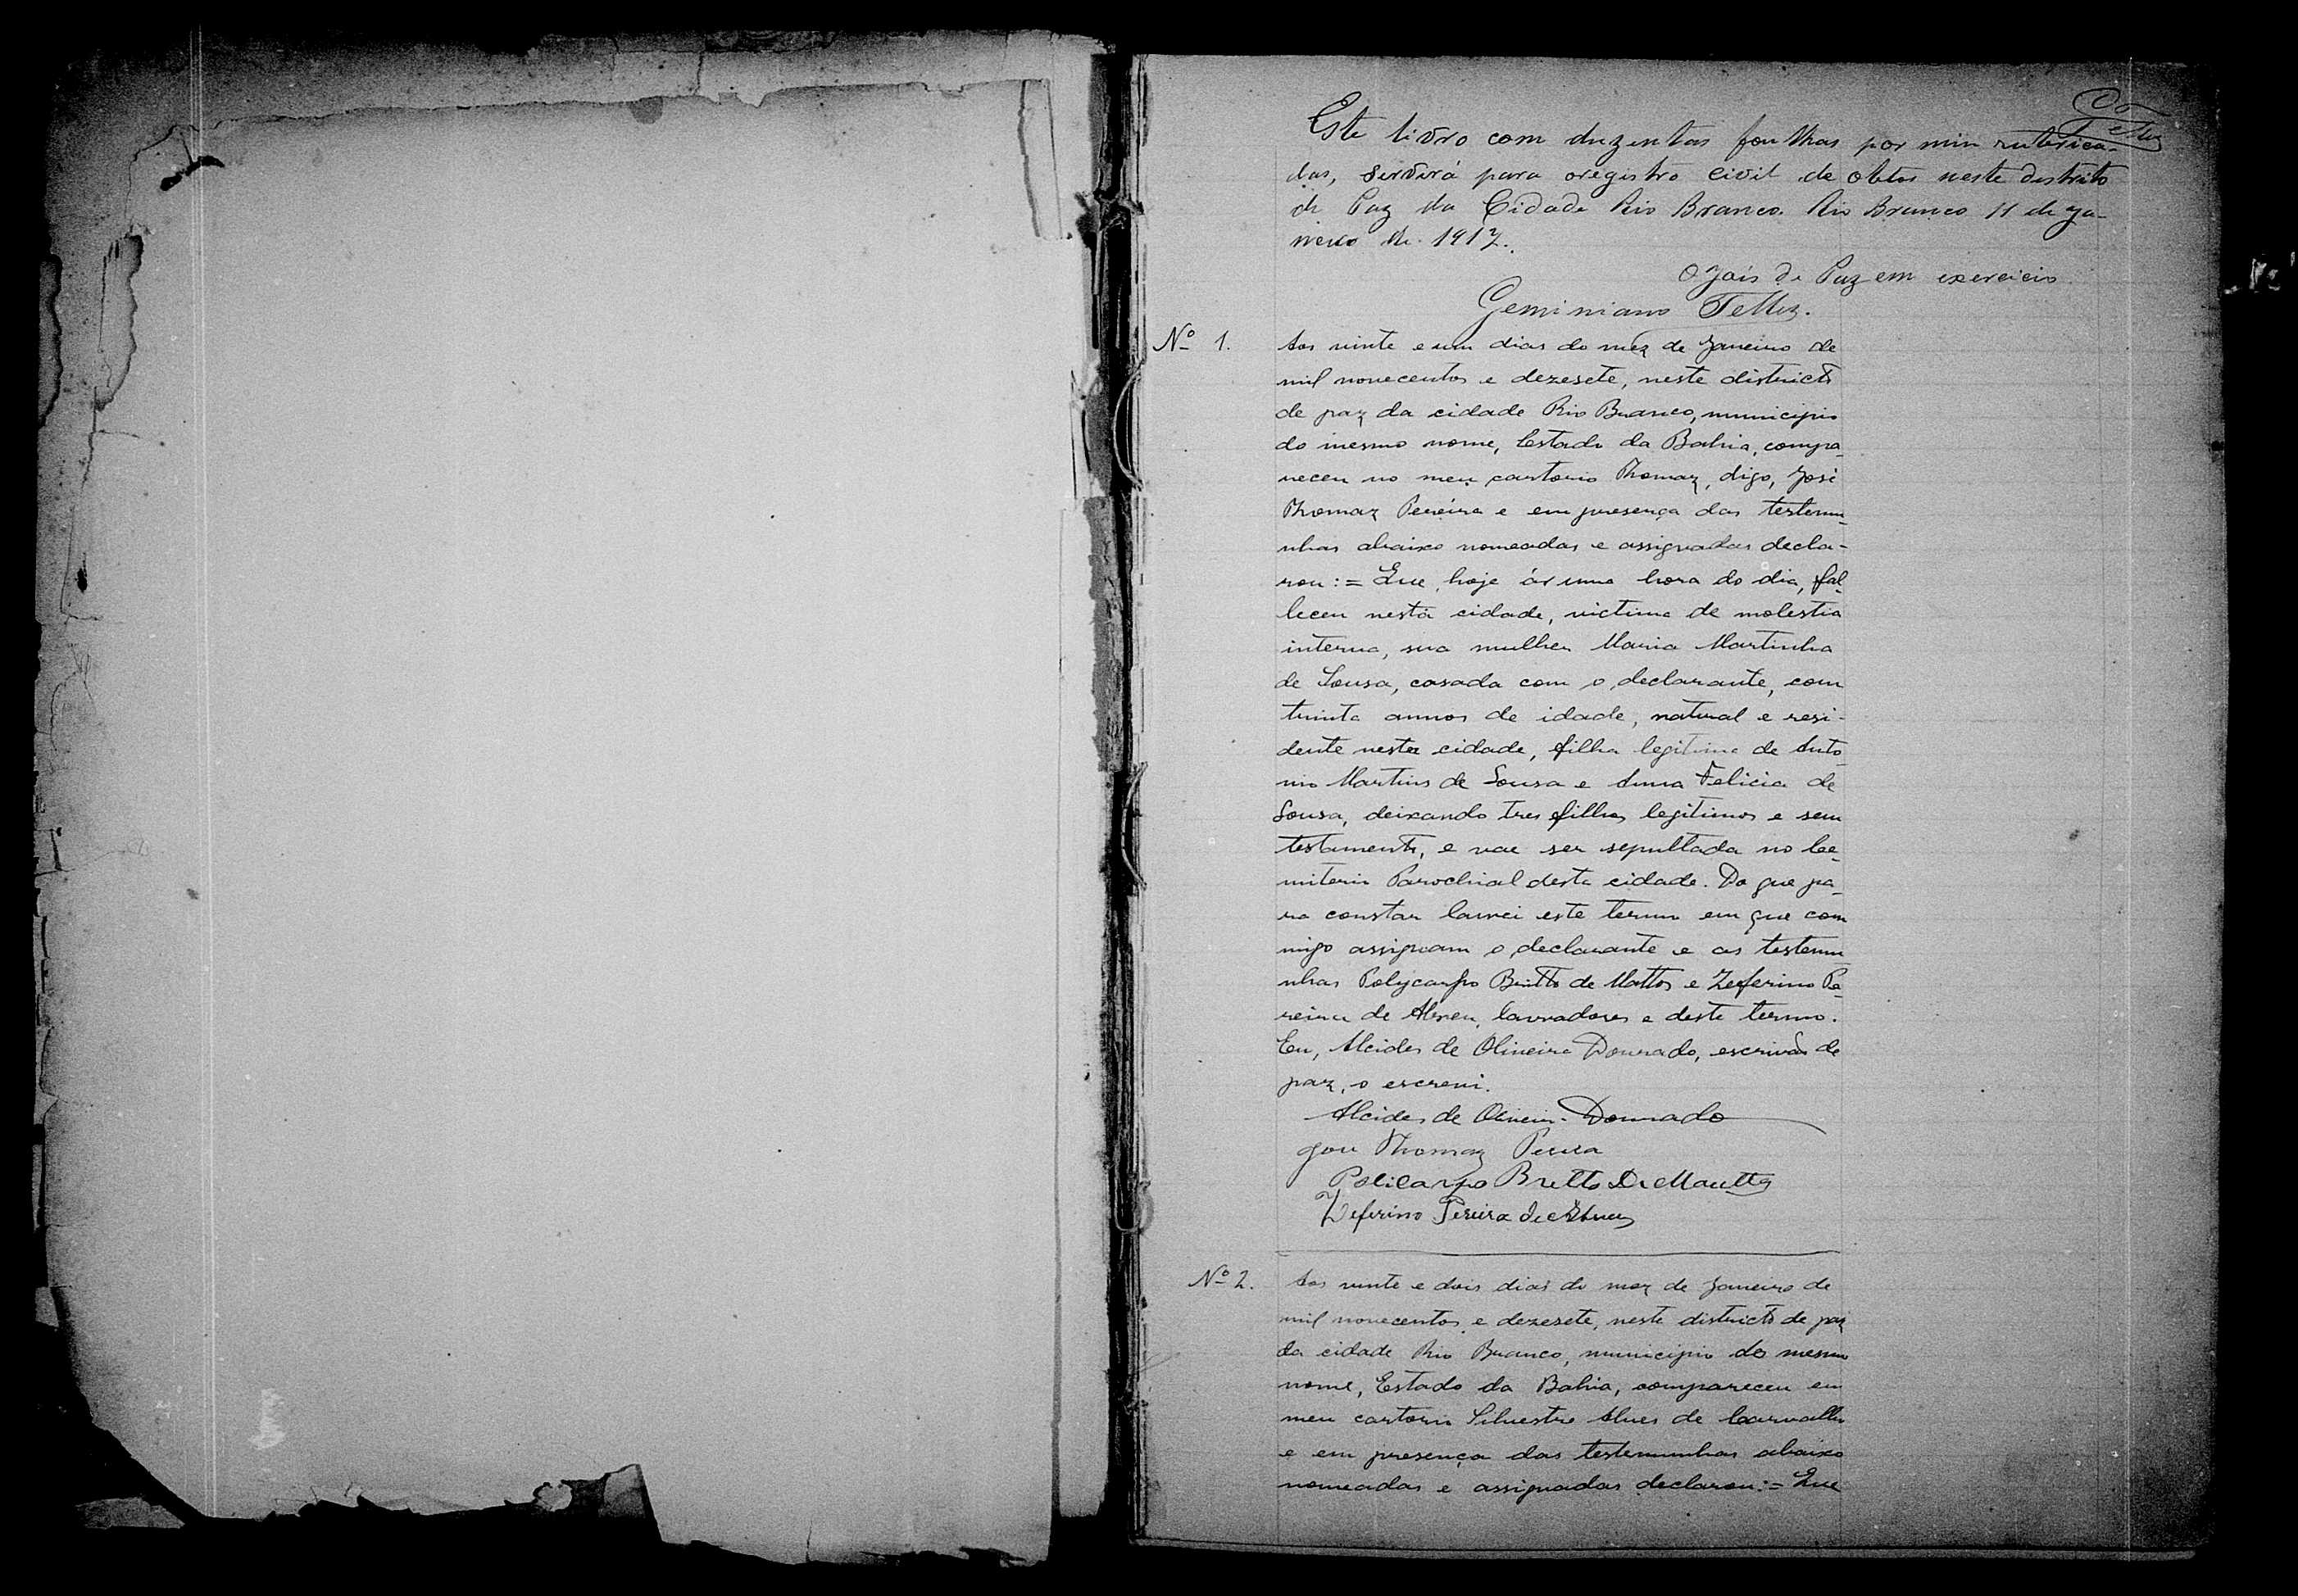 Este livro com duzentas foulhas por min rubrica-
das, servirá para oregistro civil de obtos neste destrito
de Paz da Cidade Rio Branco. Rio Branco 11 de ja-
neiro de 1917.
O Jois de Paz em exercicio
Geminiano Telles.
Nº 1.
Aos vinte e um dias do mez de Janeiro de
mil novecentos e dezesete, neste districto
de paz da cidade Rio Branco, municipio
do mesmo nome, Estado da Bahia, compa-
receu no meu cartorio Thomaz, digo, José
Thomaz Pereira e em presença das testemu-
nhas abaixo nomeadas e assignadas decla-
rou:= Que, hoje ás uma hora do dia, fal-
leceu nesta cidade, victima de molestia
interna, sua mulher Maria Martinha
de Sousa, casada com o declarante, com
trinta annos de idade, natural e resi-
dente nesta cidade, filha legitima de Anto-
nio Martins de Sousa e Anna Felicia de
Sousa, deixando tres filhos legitimos e sem
testamento, e vae ser sepultada no Ce-
miterio Parochial desta cidade. Do que pa-
ra constar lavrei este termo em que com
migo assignam o declarante e as testemu
nhas Polycarpo Britto de Mattos e Zeferino Pe-
reira de Abreu, lavradores e deste termo.
Eu, Alcides de Oliveira Dourado, escrivão de
paz, o escrevi.
Alcides de Oliveira Dourado
José Thomaz Pereira
Policarpo Bretto De Mauttos
Zeferino Pereira de Abreu
Nº 2.
Aos vinte e dois dias do mez de Janeiro de
mil novecentos e dezesete, neste districto de paz
da cidade Rio Branco, municipio do mesmo
nome, Estado da Bahia, compareceu em
meu cartorio Silvestre Alves de Carvalho
e em presença das testemunhas abaixo
nomeadas e assignadas declarou:= Que